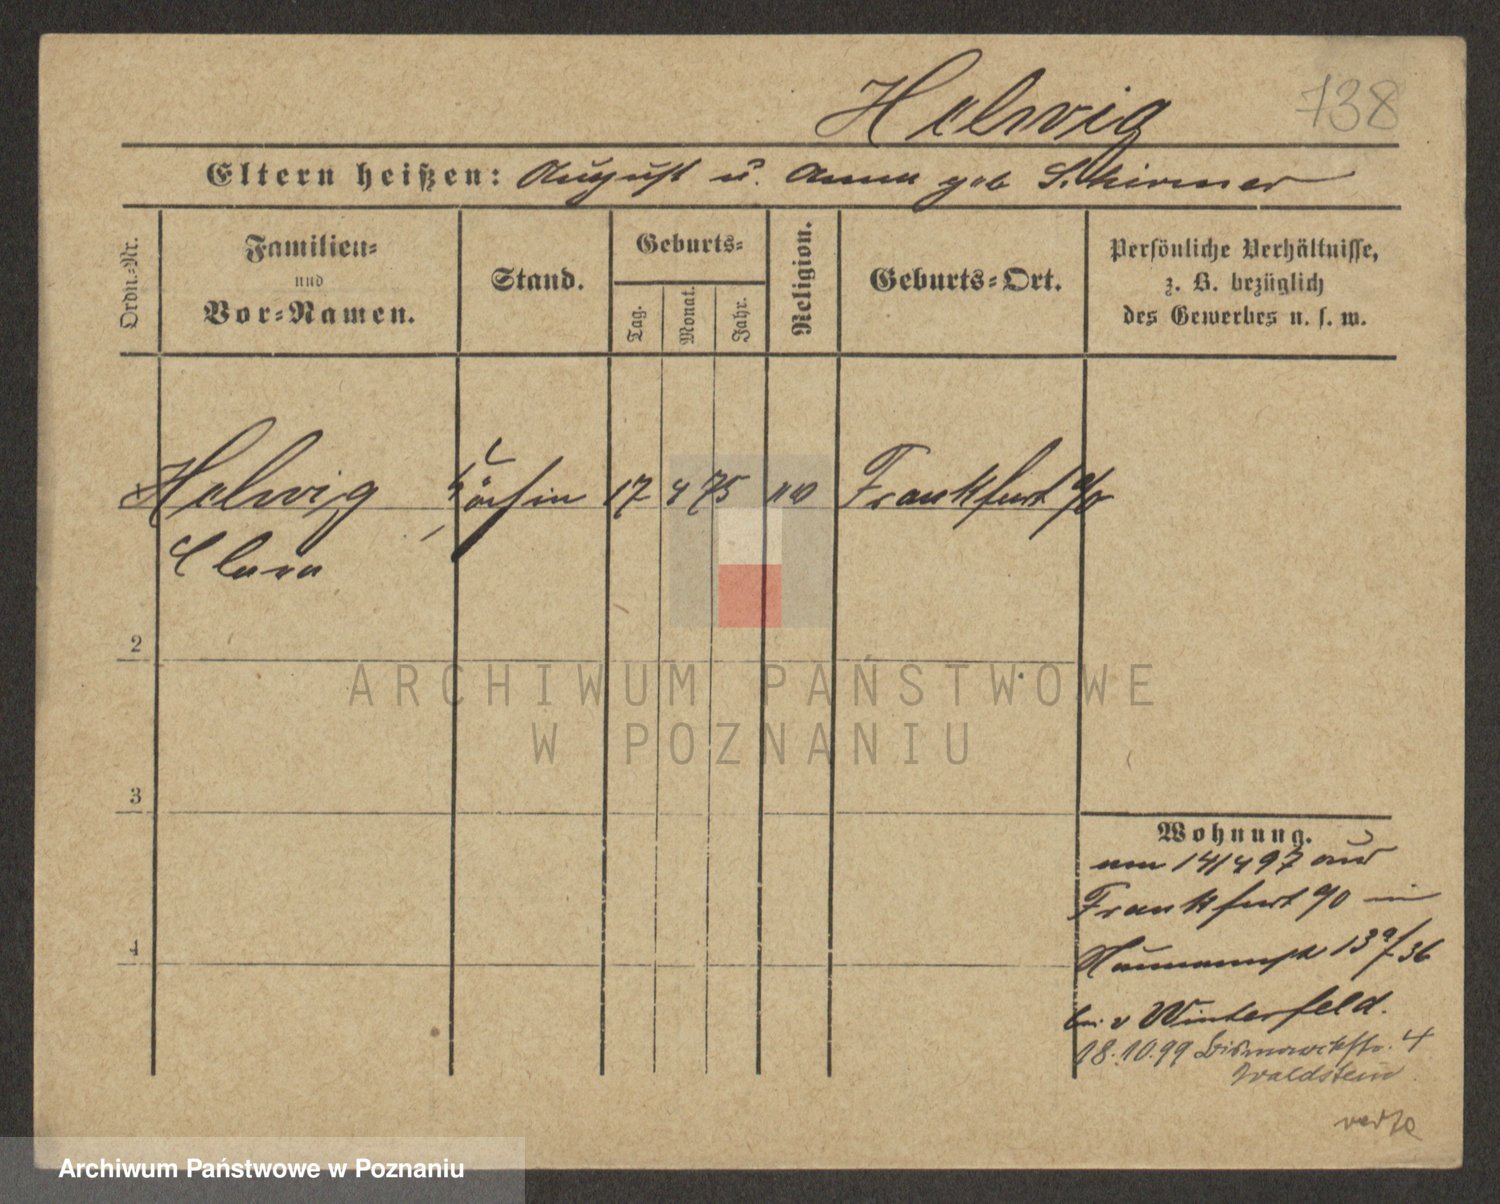 Helwig
738
Eltern heißen: August u. Anna geb Schirmer
Ordn.-Nr.
Familien-
und
Vor-Namen.
Stand.
Geburts-
Tag.
Monat.
Jahr.
Religion.
Geburts-Ort.
Persönliche Verhältnisse,
z. B. bezüglich
des Gewerbes u. s. w.
Helwig Köchin 17 4 75 ev Frankfurt a/O
Clara
2
ARCHIWUM PAŃSTWOWE
W POZNANIU
3
4
Wohnung.
am 14/4 97 aus
Frankfurt a/O in
13a/36
bei v Winterfeld.
18.10.99 Bismarckstr. 4
Waldstein
Archiwum Państwowe w Poznaniu